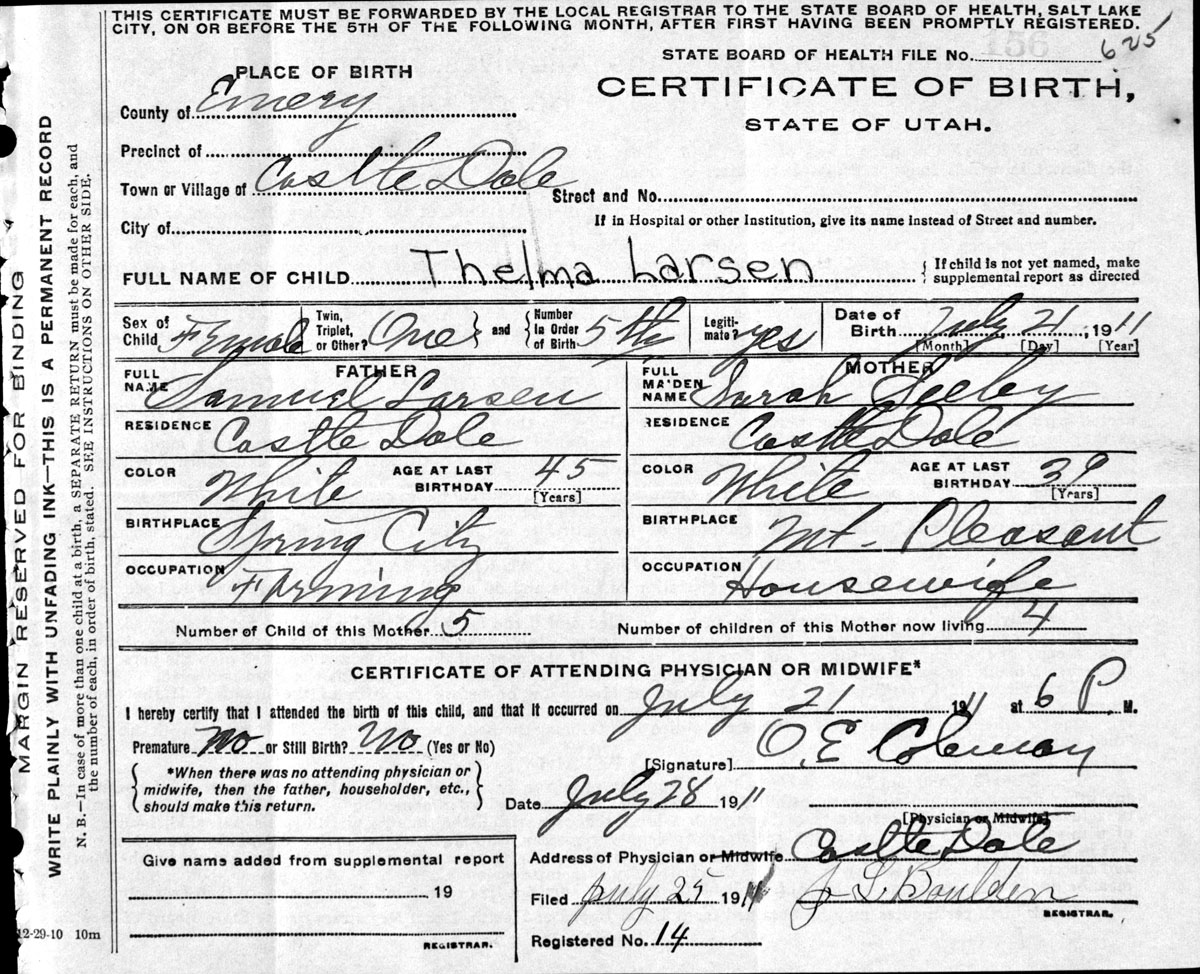 THIS CERTIFICATE MUST BE FORWARDED BY THE LOCAL REGISTRAR TO THE STATE BOARD OF HEALTH, SALT LAKE
CITY, ON OR BEFORE THE 5TH OF THE FOLLOWING MONTH, AFTER FIRST HAVING BEEN PROMPTLY REGISTERED.
156
STATE BOARD OF HEALTH FILE No. 625
PLACE OF BIRTH
CERTIFICATE OF BIRTH,
STATE OF UTAH.
County of Emery
Precinct of
Town or Village of Castle Dale Street and No.
City of If in Hospital or other Institution, give its name instead of Street and number.
FULL NAME OF CHILD Thelma Larsen { If child is not yet named, make supplemental report as directed
Sex of Child Female Twin, Triplet, or Other? One } and { Number in Order of Birth 5th Legiti-mate? yes Date of Birth July 21, 1911
[Month] [Day] [Year]
FATHER MOTHER
FULL NAME Samuel Larsen FULL MAIDEN NAME Sarah Seeley
RESIDENCE Castle Dale RESIDENCE Castle Dale
COLOR White AGE AT LAST BIRTHDAY 45 [Years] COLOR White AGE AT LAST BIRTHDAY 39 [Years]
BIRTHPLACE Spring City BIRTHPLACE Mt. Pleasant
OCCUPATION Farming OCCUPATION Housewife
Number of Child of this Mother 5 Number of children of this Mother now living 4
CERTIFICATE OF ATTENDING PHYSICIAN OR MIDWIFE*
I hereby certify that I attended the birth of this child, and that it occurred on July 21 1911 at 6 P. M.
Premature No or Still Birth? No (Yes or No)
[Signature] O. E.
{ *When there was no attending physician or midwife, then the father, householder, etc., should make this return. }
Date July 28 1911
[Physician or Midwife]
Give name added from supplemental report
19
REGISTRAR.
Address of Physician or Midwife Castle Dale
Filed July 25 1911 J L Boulden
REGISTRAR.
Registered No. 14
12-29-10 10m
MARGIN RESERVED FOR BINDING
WRITE PLAINLY WITH UNFADING INK—THIS IS A PERMANENT RECORD
N. B.—In case of more than one child at a birth, a SEPARATE RETURN must be made for each, and
the number of each, in order of birth, stated. SEE INSTRUCTIONS ON OTHER SIDE.